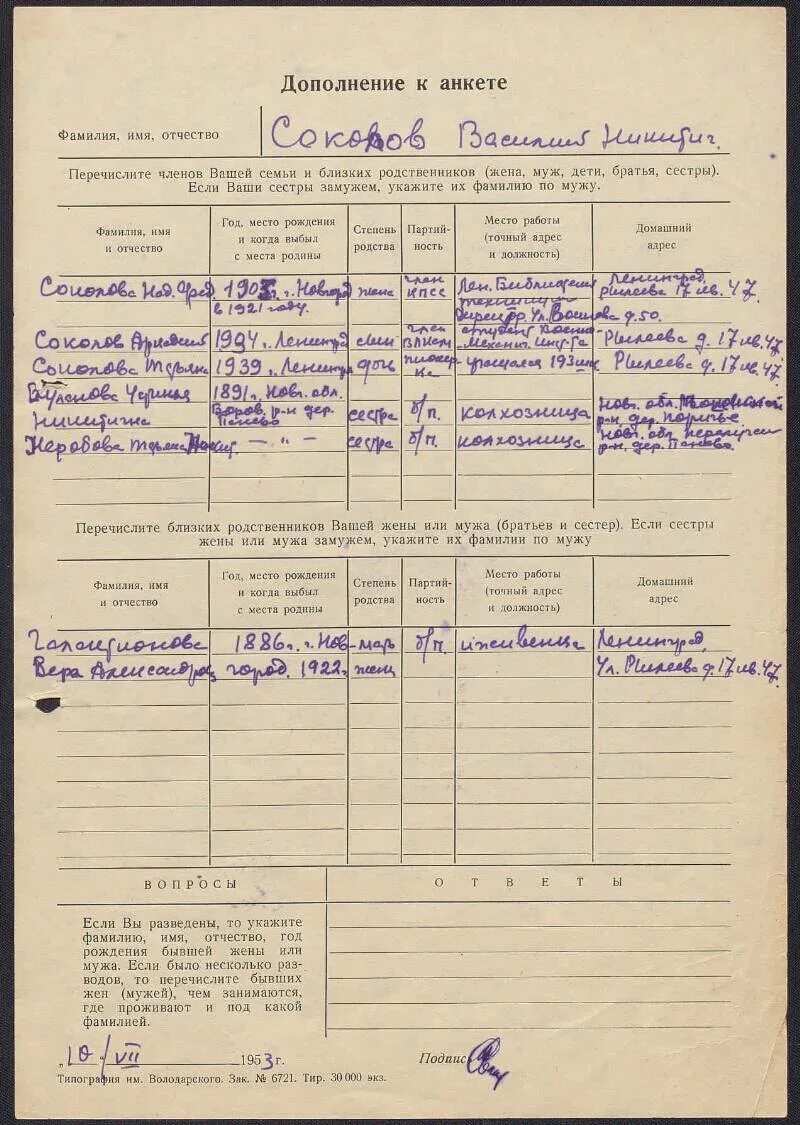 Дополнение к анкете
Фамилия, имя, отчество Соколов Василий Никитич.
Перечислите членов Вашей семьи и близких родственников (жена, муж, дети, братья, сестры).
Если Ваши сестры замужем, укажите их фамилию по мужу.
Фамилия, имя и отчество
Год, место рождения и когда выбыл с места родины
Степень родства
Партийность
Место работы (точный адрес и должность)
Домашний адрес
Соколова Над. г. Новгород в 1921 году. жена член КПСС Лен. Библиотечн. техникум ул. Воинова д. 50. Ленинград, Рылеева 17 кв. 47
Соколов Аркадий г. Ленинград сын член ВЛКСМ студент Рылеева д. 17 кв. 47
Соколова 1939 г. Ленинград дочь учащаяся Рылеева д. 17 кв. 47
Никитична 1891 г. Новг. обл. р-н дер. сестра б/п. колхозница Новг. обл. р-н. дер.
— „ — сестра б/п. колхозница Новг. обл. р-н. дер.
Перечислите близких родственников Вашей жены или мужа (братьев и сестер). Если сестры
жены или мужа замужем, укажите их фамилии по мужу
Фамилия, имя и отчество
Год, место рождения и когда выбыл с места родины
Степень родства
Партийность
Место работы (точный адрес и должность)
Домашний адрес
Галактионова 1886 г. г. Нов- мать б/п. иждивенца Ленинград,
Вера Александров. город. 1922 г. жены Ул. Рылеева д. 17 кв. 47
ВОПРОСЫ
ОТВЕТЫ
Если Вы разведены, то укажите
фамилию, имя, отчество, год
рождения бывшей жены или
мужа. Если было несколько раз-
водов, то перечислите бывших
жен (мужей), чем занимаются,
где проживают и под какой
фамилией.
„10/VII 1953 г. Подпись
Типография им. Володарского. Зак. № 6721. Тир. 30 000 экз.